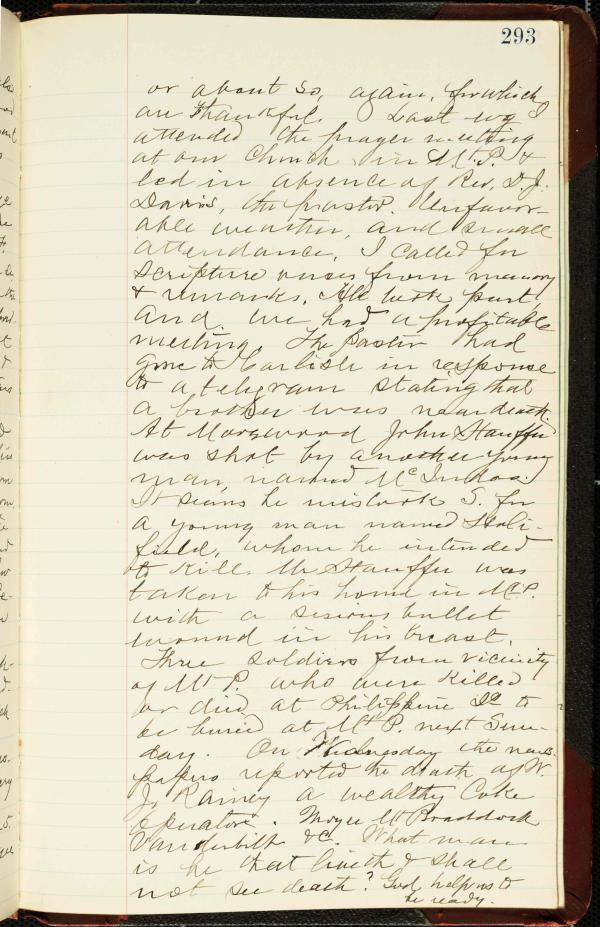 293
or about so, again, for which I
am thankful. Last evg I
attended the prayer meeting
at our Church in Mt. P. &
led in absence of Rev. D. J.
Davis, the pastor. Unfavor-
able weather, and small
attendance, I called for
Scripture verses from memory
& remarks. All took part,
and we had a profitable
meeting. The pastor had
gone to Carlisle in response
to a telegram stating that
a brother was near death.
At Morewood John Stauffer
was shot by another young
man, named
It seems he mistook S. for
a young man named Holi-
field, whom he intended
to kill. Mr Stauffer was
taken to his home in Mt P.
with a serious bullet
wound in his breast.
Three soldiers from vicinity
of Mt P. who were killed
or died at Philippine Is to
be buried at Mt P. next Sun-
day. On Wednesday the news
papers reported the death of W.
J. Rainey a wealthy Coke
Operator. at Braddock
Vanderbilt &c. What man
is he that liveth & shall
not see death? God help us to
be ready.